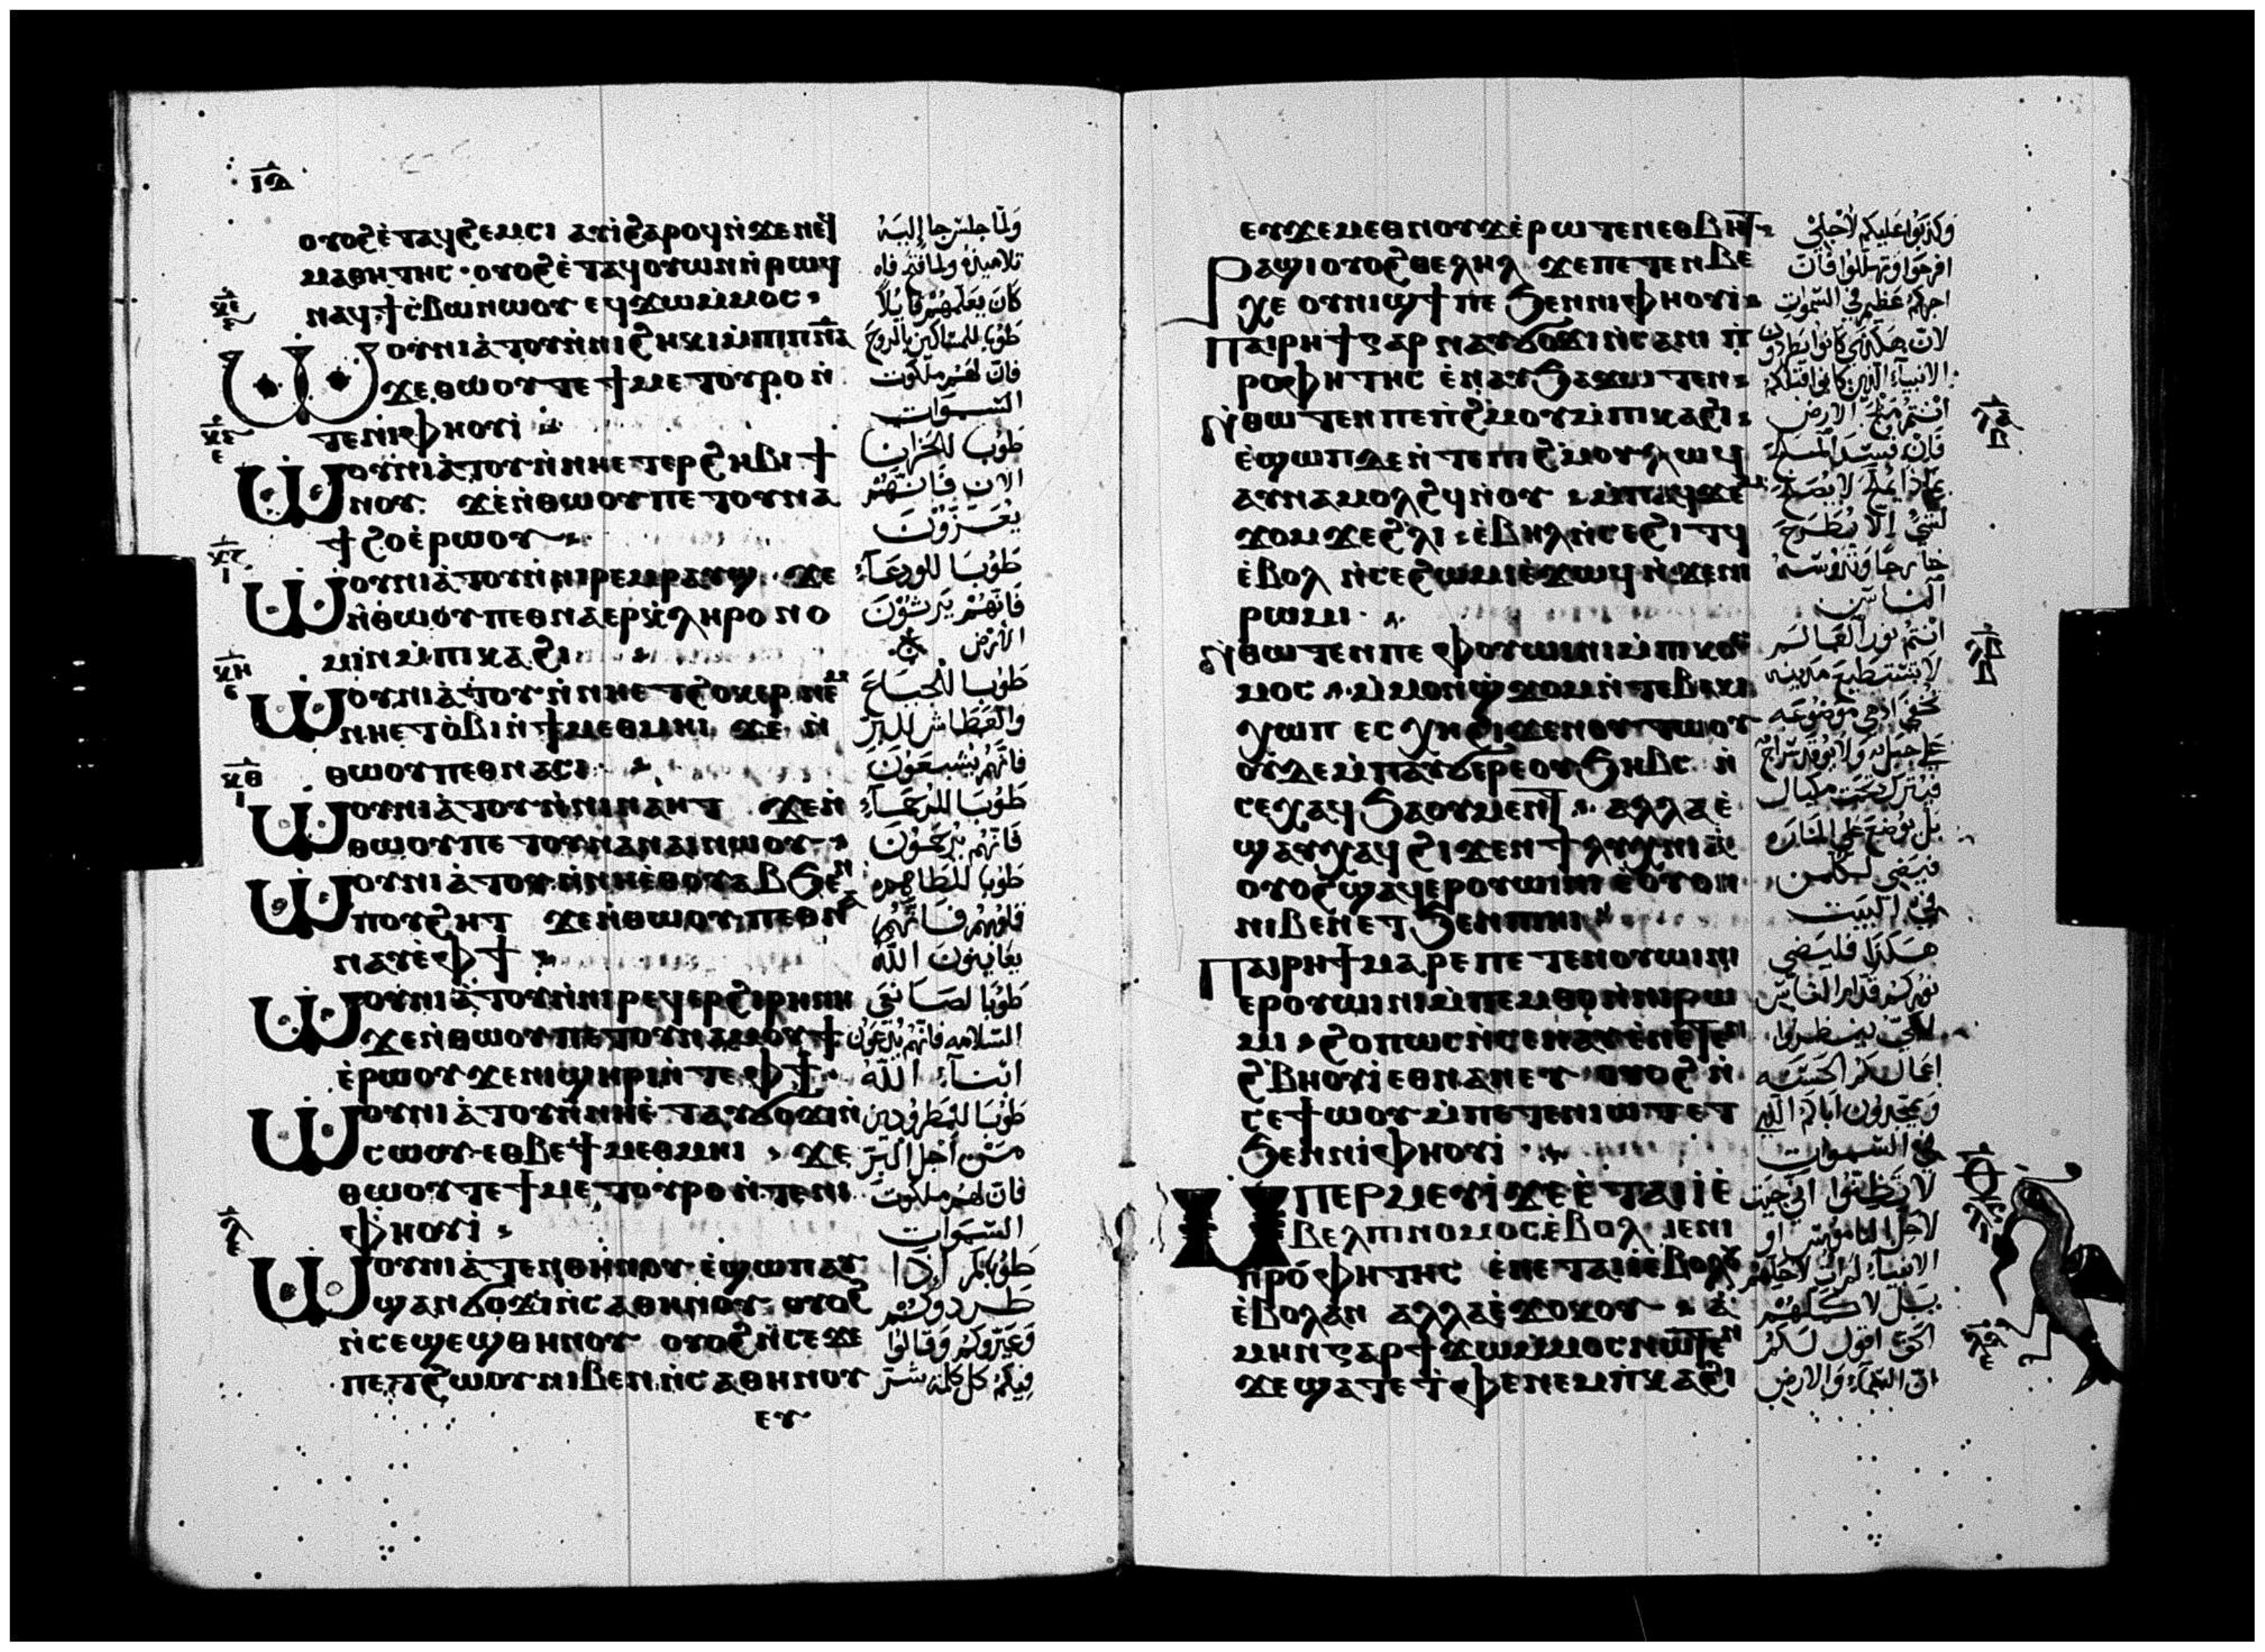 ⲓⲇ
ⲟⲩⲟϩ ⲉ̇ⲧⲁϥϩⲉⲙⲥⲓ ⲁⲩⲓ̇ ϩⲁⲣⲟϥ ⲛ̇ϫⲉ ⲛⲉϥ
ⲙⲁⲑⲏⲧⲏⲥ · ⲟⲩⲟϩ ⲉ̇ⲧⲁϥⲟⲩⲱⲛ ⲛ̇ⲣⲱϥ
ⲛⲁϥϯⲥ̇ⲃⲱ ⲛⲱⲟⲩ ⲉϥϫⲱ ⲙ̇ⲙⲟⲥ
ⲱⲟⲩⲛⲓⲁ̇ⲧⲟⲩ ⲛ̇ⲛⲓϩⲏⲕⲓ ⲙ̇ⲡⲓⲡⲛ̅ⲁ̅
ϫⲉ ⲑⲱⲟⲩ ⲧⲉ ϯⲙⲉⲧⲟⲩⲣⲟ ⲛ̇
ⲧⲉ ⲛⲓⲫⲏⲟⲩⲓ̇
ⲱⲟⲩⲛⲓⲁ̇ⲧⲟⲩ ⲛ̇ⲛⲏ ⲉⲧⲉⲣϩⲏⲃⲓ ϯ
ⲛⲟⲩ ϫⲉ ⲛ̇ⲑⲱⲟⲩ ⲡⲉⲧⲟⲩⲛⲁ
ϯϩⲟ ⲉ̇ⲣⲱⲟⲩ
ⲱⲟⲩⲛⲓⲁ̇ⲧⲟⲩ ⲛ̇ⲛⲓⲣⲉⲙⲣⲁⲩϣ ϫⲉ
ⲛ̇ⲑⲱⲟⲩ ⲡⲉⲑⲛⲁⲉⲣⲕ̇ⲗⲏⲣⲟⲛⲟ
ⲙⲓⲛ ⲙ̇ⲡⲓⲕⲁϩⲓ
ⲱⲟⲩⲛⲓⲁ̇ⲧⲟⲩ ⲛ̇ⲛⲏ ⲉⲧϩⲟⲕⲉⲣ ⲛⲉⲙ
ⲛⲏ ⲉⲧⲟ̇ⲃⲓ ⲛ̇ϯⲙⲉⲑⲙⲏⲓ ϫⲉ ⲛ̇
ⲑⲱⲟⲩ ⲡⲉⲑⲛⲁⲥⲓ
ⲱⲟⲩⲛⲓⲁ̇ⲧⲟⲩ ⲛ̇ⲛⲓⲛⲁⲏⲧ ϫⲉ ⲛ̇
ⲑⲱⲟⲩ ⲡⲉⲧⲟⲩⲛⲁⲛⲁⲓ ⲛⲱⲟⲩ
ⲱⲟⲩⲛⲓⲁ̇ⲧⲟⲩ ⲛ̇ⲛⲏ ⲉ̇ⲑⲟⲩⲁⲃ ϧⲉⲛ
ⲡⲟⲩϩⲏⲧ ϫⲉ ⲛ̇ⲑⲱⲟⲩ ⲡⲉⲑⲛⲁ
ⲛⲁⲩ ⲉ̇ⲫϯ
ⲱⲟⲩⲛⲓⲁ̇ⲧⲟⲩ ⲛ̇ⲛⲓⲣⲉϥⲉⲣϩⲓⲣⲏⲛⲏ
ϫⲉ ⲛ̇ⲑⲱⲟⲩ ⲡⲉⲧⲟⲩⲛⲁⲙⲟⲩϯ
ⲉ̇ⲣⲱⲟⲩ ϫⲉ ⲛⲓϣⲏⲣⲓ ⲛ̇ⲧⲉ ⲫϯ
ⲱⲟⲩⲛⲓⲁ̇ⲧⲟⲩ ⲛ̇ⲛⲏ ⲉ̇ⲧⲁⲩϭⲟϫⲓ ⲛ̇
ⲥⲱⲟⲩ ⲉⲑⲃⲉ ϯⲙⲉⲑⲙⲏⲓ ϫⲉ
ⲑⲱⲟⲩ ⲧⲉ ϯⲙⲉⲧⲟⲩⲣⲟ ⲛ̇ⲧⲉ ⲛⲓ
ⲫⲏⲟⲩⲓ
ⲱⲟⲩⲛⲓⲁ̇ⲧⲉⲛⲑⲏⲛⲟⲩ ⲉ̇ϣⲱⲡ ⲁⲩ
ϣⲁⲛϭⲟϫⲓ ⲛ̇ⲥⲁⲑⲏⲛⲟⲩ ⲟⲩⲟϩ
ⲛ̇ⲥⲉϣⲉϣⲑⲏⲛⲟⲩ ⲟⲩⲟϩ ⲛ̇ⲥⲉϫⲉ
ⲡⲉⲧϩⲱⲟⲩ ⲛⲓⲃⲉⲛ ⲛ̇ⲥⲁⲑⲏⲛⲟⲩ
ⲉⲩ
ولما جلس جا إليه
تلاميذه ولما فتح فاه
كان يعلمهم قايلا
طوبا للمساكين بالروح
فان لهم ملكوت
السموات
طوبا للحزانا
الان فانهم
يعزون
طوبا للودعاء
فانهم يرثون
الارض
طوبا للجياع
والعطاش للبر
فانهم يشبعون
طوبا للرحماء
فانهم يرحمون
طوبا للطاهره
قلوبهم فانهم
يعاينون الله
طوبا لصانعي
السلامه فانهم يدعون
ابناء الله
طوبا للمطرودين
من أجل البر
فان لهم ملكوت
السموات
طوباكم إذا
طردوكم
وعيروكم وقالوا
فيكم كل كلمة شر
ⲉⲩϫⲉ ⲙⲉⲑⲛⲟⲩϫ ⲉ̇ⲣⲱⲧⲉⲛ ⲉⲑⲃⲏⲧ
ⲣⲁϣⲓ ⲟⲩⲟϩ ⲑⲉⲗⲏⲗ ϫⲉ ⲡⲉⲧⲉⲛⲃⲉ
ⲭⲉ ⲟⲩⲛⲓϣϯ ⲡⲉ ϧⲉⲛ ⲛⲓⲫⲏⲟⲩⲓ̇
ⲡⲁⲓⲣⲏϯ ⲅⲁⲣ ⲛⲁⲩϭⲟϫⲓ ⲛ̇ⲥⲁ ⲛⲓⲡ̇
ⲣⲟⲫⲏⲧⲏⲥ ⲉ̇ⲛⲁⲩϧⲁϫⲱⲧⲉⲛ
ⲛ̇ⲑⲱⲧⲉⲛ ⲡⲉ ⲡ̇ϩⲙⲟⲩ ⲙ̇ⲡⲓⲕⲁϩⲓ
ⲉ̇ϣⲱⲡ ⲇⲉ ⲛ̇ⲧⲉ ⲡⲓϩⲙⲟⲩ ⲗⲱϥ
ⲁⲩⲛⲁⲙⲟⲗϩϥ ⲛ̇ⲟⲩ ⲙ̇ⲡⲁϥϫⲉⲙ
ϫⲟⲙ ϫⲉ ϩ̇ⲗⲓ ⲉ̇ⲃⲏⲗ ⲛ̇ⲥⲉϩⲓⲧϥ
ⲉ̇ⲃⲟⲗ ⲛ̇ⲥⲉϩⲱⲙⲓ ⲉ̇ϫⲱϥ ⲛ̇ϫⲉ ⲛⲓ
ⲣⲱⲙⲓ
ⲛ̇ⲑⲱⲧⲉⲛ ⲡⲉ ⲫⲟⲩⲱⲓⲛⲓ ⲙ̇ⲡⲓⲕⲟⲥ
ⲙⲟⲥ ⲙ̇ⲙⲟⲛ ϣϫⲟⲙ ⲛ̇ⲧⲉ ⲃⲁⲕⲓ
ⲭⲱⲡ ⲉⲥⲭⲏ ϩⲓϫⲉⲛ ⲟⲩⲧⲱⲟⲩ
ⲟⲩⲇⲉ ⲙ̇ⲡⲁⲩϭⲉⲣⲉ ⲟⲩϧⲏⲃⲥ ⲛ̇
ⲥⲉⲭⲁϥ ϧⲁ ⲟⲩⲙⲉⲛⲧ ⲁⲗⲗⲁ ⲉ̇
ϣⲁⲩⲭⲁϥ ϩⲓϫⲉⲛ ϯⲗⲩⲭⲛⲓⲁ
ⲟⲩⲟϩ ϣⲁϥⲉⲣⲟⲩⲱⲓⲛⲓ ⲉ̇ⲟⲩⲟⲛ
ⲛⲓⲃⲉⲛ ⲉⲧϧⲉⲛ ⲡⲓⲏⲓ
ⲡⲁⲓⲣⲏϯ ⲙⲁⲣⲉ ⲡⲉⲧⲉⲛⲟⲩⲱⲓⲛⲓ
ⲉⲣⲟⲩⲱⲓⲛⲓ ⲙ̇ⲡⲉⲙⲑⲟ ⲛ̇ⲛⲓⲣⲱ
ⲙⲓ ϩⲟⲡⲱⲥ ⲛ̇ⲥⲉⲛⲁⲩ ⲉ̇ⲛⲉⲧⲉⲛ
ϩ̇ⲃⲏⲟⲩⲓ ⲉⲑⲛⲁⲛⲉⲩ ⲟⲩⲟϩ ⲛ̇
ⲥⲉϯⲱⲟⲩ ⲙ̇ⲡⲉⲧⲉⲛⲓⲱⲧ ⲉⲧ
ϧⲉⲛ ⲛⲓⲫⲏⲟⲩⲓ
ⲙⲡⲉⲣⲙⲉⲩⲓ̇ ϫⲉ ⲉ̇ⲧⲁⲓⲓ̇ ⲉ̇
ⲃⲉⲗ ⲡⲓⲛⲟⲙⲟⲥ ⲉ̇ⲃⲟⲗ ⲓⲉ ⲛⲓ
ⲡⲣⲟⲫⲏⲧⲏⲥ ⲉ̇ⲛⲉⲧⲁⲓⲓ̇ ⲉ̇ⲃⲟⲗⲟⲩ
ⲉ̇ⲃⲟⲗ ⲁⲛ ⲁⲗⲗⲁ ⲉ̇ϫⲟⲕⲟⲩ ⲁ̇
ⲙⲏⲛ ⲅⲁⲣ ϯϫⲱ ⲙ̇ⲙⲟⲥ ⲛⲱⲧⲉⲛ
ϫⲉ ϣⲁⲧⲉ ⲧ̇ⲫⲉ ⲛⲉⲙ ⲡ̇ⲕⲁϩⲓ
وكذبوا عليكم لأجلي
افرحوا وتهللوا فان
اجركم عظيم في السموات
لان هكذي كانوا يطردون
الانبياء الذين كانوا قبلكم
انتم ملح الارض
فان فسد الملح
بماذا يملح لا يصلح
لشي الا يطرح
خارجا وتدوسه
الناس
انتم نور العالم
لا تستطيع مدينه
تخفي اذ هي موضوعه
على جبل ولا يوقد سراج
فيترك تحت مكيال
بل يوضع على المناره
فيضي لكل من
في البيت
هكذا فليضي
نوركم قدام الناس
لكي ينظروا
اعمالكم الحسنه
ويمجدون اباكم الذي
في السموات
لا تظنوا اني جيت
لاحل الناموس او
الانبياء لم ات لاحلهم
بل لاكملهم
الحق اقول لكم
ان السماء والارض